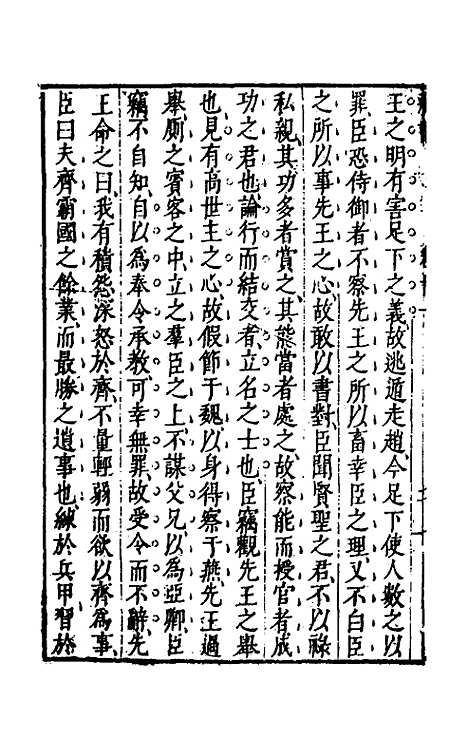 王之明有害足下之義故逃遁走趙今足下使人數之以
罪臣恐侍御者不察先王之所以畜幸臣之理又不白臣
之所以事先王之心故敢以書對臣聞賢聖之君不以祿
私親其功多者賞之其能當者處之故察能而授官者成
功之君也論行而結交者立名之士也臣竊觀先王之舉
也見有高世主之心故假節于魏以身得察于燕先王過
舉廁之賓客之中立之羣臣之上不謀父兄以為亞卿臣
竊不自知自以為奉令承教可幸無罪故受令而不辭先
王命之曰我有積怨深怒於齊不量輕弱而欲以齊為事
臣曰夫齊霸國之餘業而最勝之遺事也練於兵甲習於